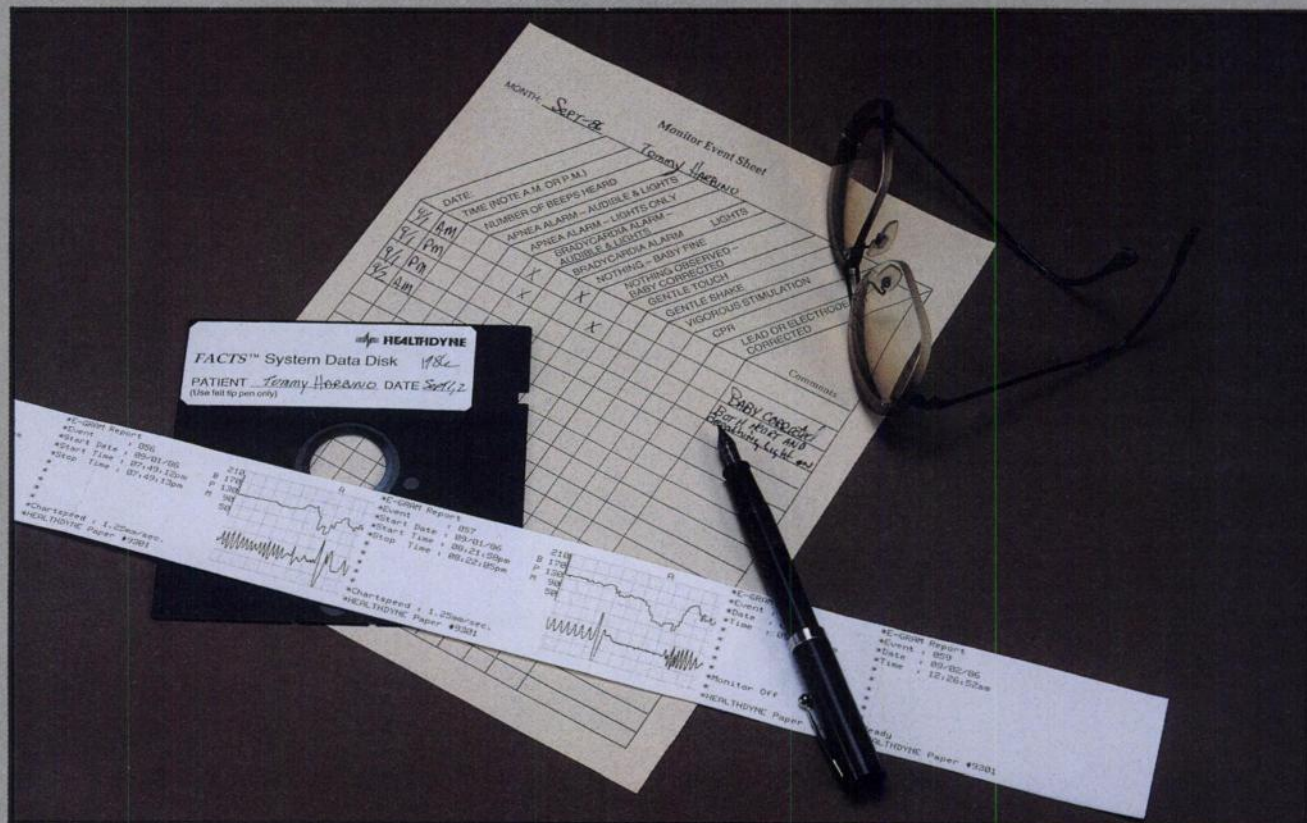 MONTH: SEPT-86
Monitor Event Sheet
Tommy HARBINO
DATE:
TIME (NOTE A.M. OR P.M.)
NUMBER OF BEEPS HEARD
APNEA ALARM – AUDIBLE & LIGHTS
APNEA ALARM – LIGHTS ONLY
BRADYCARDIA ALARM –
AUDIBLE & LIGHTS
BRADYCARDIA ALARM LIGHTS
NOTHING – BABY FINE
NOTHING OBSERVED –
BABY CORRECTED
GENTLE TOUCH
GENTLE SHAKE
VIGOROUS STIMULATION
CPR
LEAD OR ELECTRODE
CORRECTED
Comments
9/1 AM
9/1 PM X X
9/1 PM X
9/2 AM X
BABY CORRECTED!
BOTH HEART AND
Breathing Light on
HEALTHDYNE
FACTS™ System Data Disk 1986
PATIENT Tommy HARBINO DATE Sept 1,2
(Use felt tip pen only)
*E-GRAM Report
*Event : 056
*Start Date : 09/01/86
*Start Time : 07:49:12pm
*Stop Time : 07:49:13pm
*
*
*
*Chartspeed : 1.25mm/sec.
*HEALTHDYNE Paper #9301
210
B 170
P 130
M 90
50
A
*E-GRAM Report
*Event : 057
*Start Date : 09/01/86
*Start Time : 08:21:58pm
*Stop Time : 08:22:05pm
*
*
*
*Chartspeed : 1.25mm/sec.
*HEALTHDYNE Paper #9301
210
B 170
P 130
M 90
50
A
*E-GRAM Report
*Event :
*Date :
*Time :
*
*
*
*Monitor Off
*
*HEALTHDYNE Paper
*E-GRAM Report
*Event : 059
*Date : 09/02/86
*Time : 12:26:52am
*
*
*
HEALTHDYNE Paper #9301